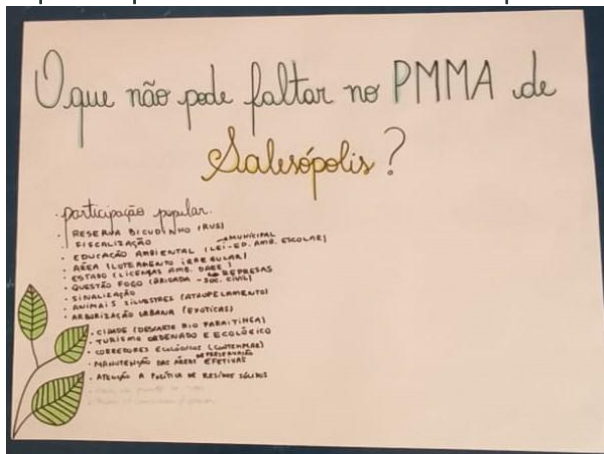 O que não pode faltar no PMMA de
Salesópolis?
· participação popular.
· RESERVA BICUDINHO (RVS)
· FISCALIZAÇÃO
· EDUCAÇÃO AMBIENTAL (LEI MUNICIPAL - ED. AMB. ESCOLAR)
· ÁREA (LOTEAMENTO IRREGULAR)
· ESTADO (LICENÇAS AMB. DARE)
· QUESTÃO FOGO (BRIGADA - SOC. CIVIL) REPRESAS
· SINALIZAÇÃO
· ANIMAIS SILVESTRES (ATROPELAMENTO)
· ARBORIZAÇÃO URBANA (EXÓTICAS)
· CIDADE (DESCARTE RIO PARAITINGA)
· TURISMO ORDENADO E ECOLÓGICO
· CORREDORES ECOLÓGICOS (CONTEMPLAR)
· MANUTENÇÃO DAS ÁREAS DE PRESERVAÇÃO EFETIVAS
· ATENÇÃO A POLÍTICA DE RESÍDUOS SÓLIDOS